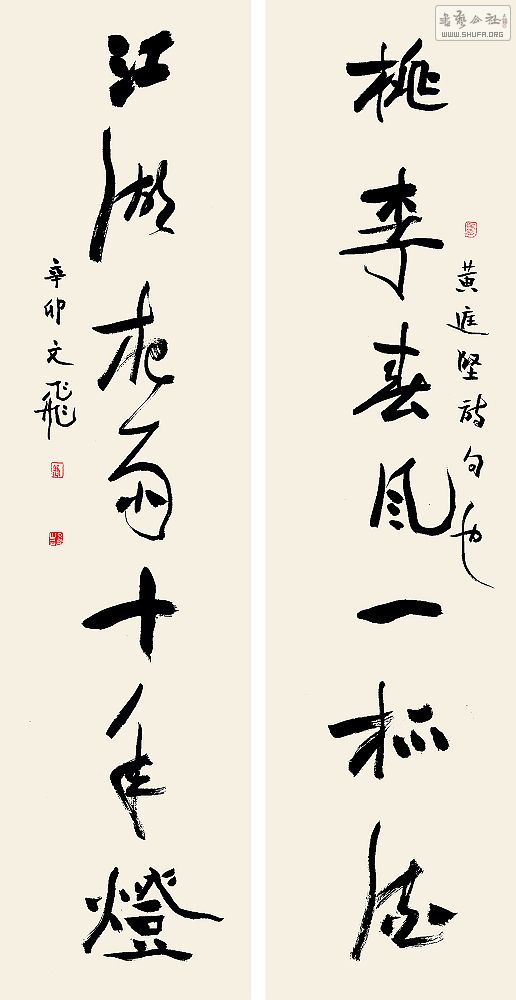 桃李春风一杯酒
黄庭坚诗句也
江湖夜雨十年燈
辛卯文飛
書藝公社
WWW.SHUFA.ORG